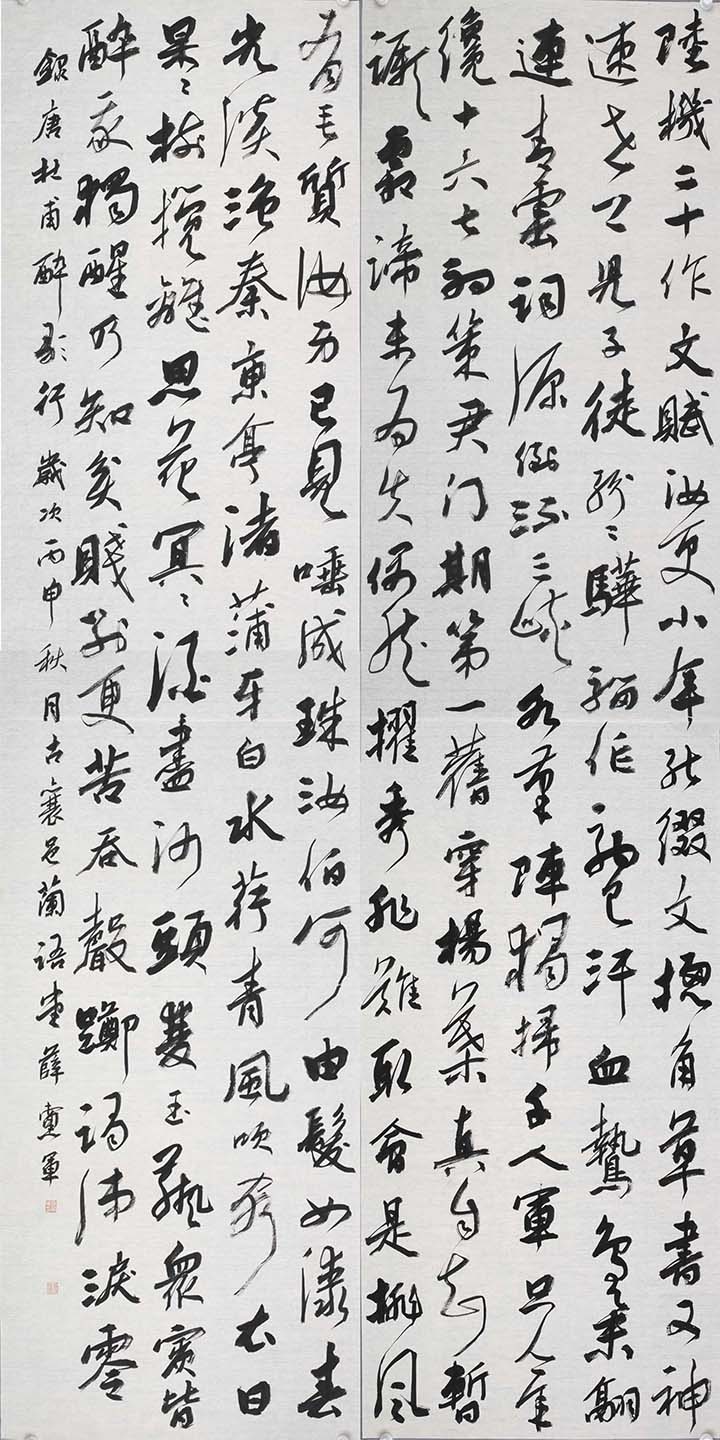 陸機二十作文賦汝更小年能綴文摠角草書又神
速世上兒子徒紛〻驊騮作駒已汗血鷙鳥舉翮
連青雲詞源倒流三峽水筆陣獨掃千人軍只今年
纔十六七射策君門期第一舊穿楊葉真自知暫
蹶霜蹄未為失偶然擢秀非難取會是排風
有毛質汝身已見唾成珠汝伯何由髮如漆春
光淡沲秦東亭渚蒲牙白水荇青風吹客衣日
杲〻樹攪離思花冥〻酒盡沙頭雙玉瓶眾賓皆
醉我獨醒乃知貧賤別更苦吞聲躑躅涕淚零
錄唐杜甫醉歌行歲次丙申秋月古襄邑蘭語堂薛憲軍